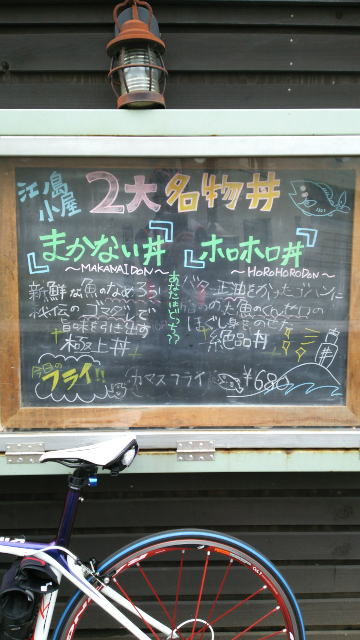 江ノ島
小屋
2大名物丼
『まかない丼』
～MAKANAIDON～
新鮮な魚のなめろうが
秘伝のゴマダレで
旨味を引き出す
極上丼
あなたはどっち??
『ホロホロ丼』
～HOROHORODON～
バター正油をかけたゴハンに
魚のくんせいの
ほぐし身をのせた
絶品丼
今日の
フライ!!
カマスフライ ¥680